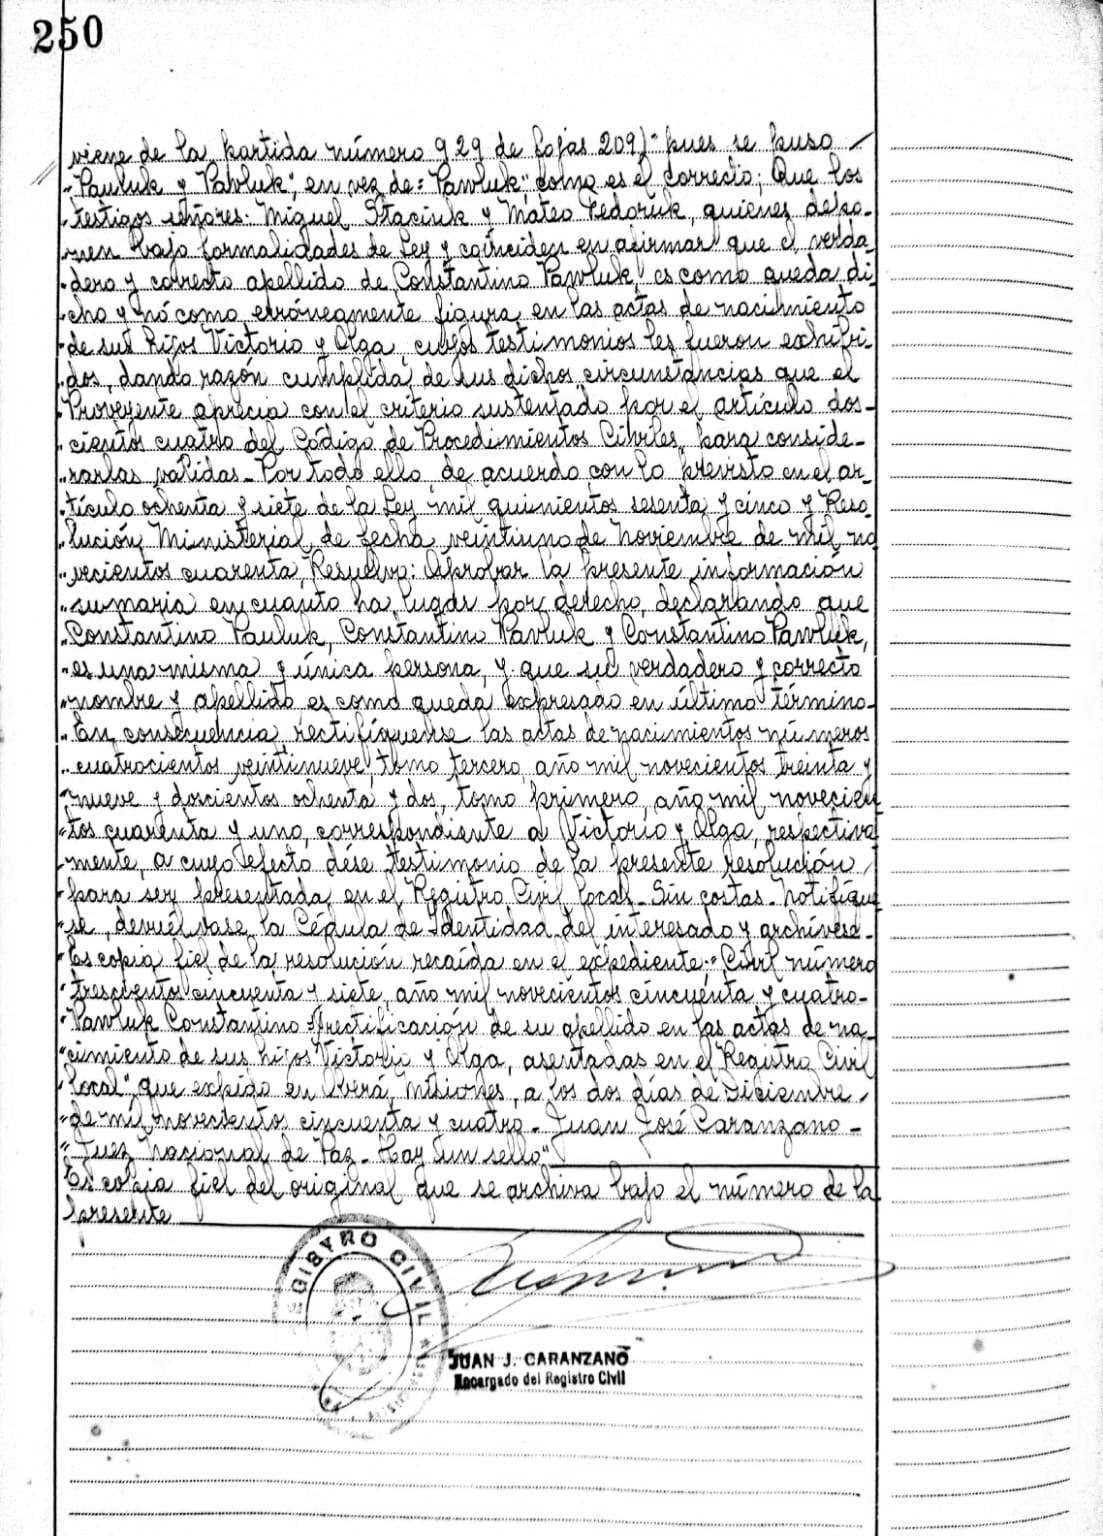 250
viene de la partida número 929 de fojas 209)" pues se puso
"Pauluk y Pavluk", en vez de: "Pawluk", como es el correcto; Que los
"testigos señores: Miguel Staciuk y Mateo Fedoruk, quienes depo-
"nen bajo formalidades de Ley y coinciden en afirmar que el verda-
"dero y correcto apellido de Constantino Pawluk, es como queda di-
"cho y nó como erróneamente figura en las actas de nacimiento
"de sus hijos Victorio y Olga, cuyos testimonios les fueron exhibi-
"dos, dando razón cumplida de sus dichos, circunstancias que el
"Proveyente aprecia con el criterio sustentado por el artículo dos-
"cientos cuatro del Código de Procedimientos Civiles, para conside-
"rarlas válidas.- Por todo ello, de acuerdo con lo previsto en el ar-
"tículo ochenta y siete de la Ley mil quinientos sesenta y cinco y Reso-
"lución Ministerial de fecha veintiuno de Noviembre de mil no
"vecientos cuarenta, Resuelvo: Aprobar la presente información
"sumaria en cuanto ha lugar por derecho, declarando que
"Constantino Pauluk, Constantino Pavluk y Constantino Pawluk,
"es una misma y única persona, y que su verdadero y correcto
"nombre y apellido es como queda expresado en último término.-
"En consecuencia, rectifíquense las actas de nacimientos números
"cuatrocientos veintinueve, tomo tercero, año mil novecientos treinta y
"nueve y doscientos ochenta y dos, tomo primero, año mil novecien
"tos cuarenta y uno, correspondiente a Victorio y Olga, respectiva
"mente, a cuyo efecto dése testimonio de la presente resolución,
"para ser presentada en el Registro Civil local.- Sin costas.- Notifíque
"se, devuélvase la Cédula de Identidad del interesado y archívese.-
"Es copia fiel de la resolución recaída en el expediente: "Civil número
"trescientos cincuenta y siete, año mil novecientos cincuenta y cuatro-
"Pawluk Constantino s/rectificación de su apellido en las actas de na-
"cimiento de sus hijos Victorio y Olga, asentadas en el Registro Civil
"local", que expido en Oberá, Misiones, a los dos días de Diciembre
"de mil novecientos cincuenta y cuatro.- Juan José Caranzano-
"Juez Nacional de Paz.- Hay un sello"
Es copia fiel del original que se archiva bajo el número de la
presente
REGISTRO CIVIL
JUAN J. CARANZANO
Encargado del Registro Civil